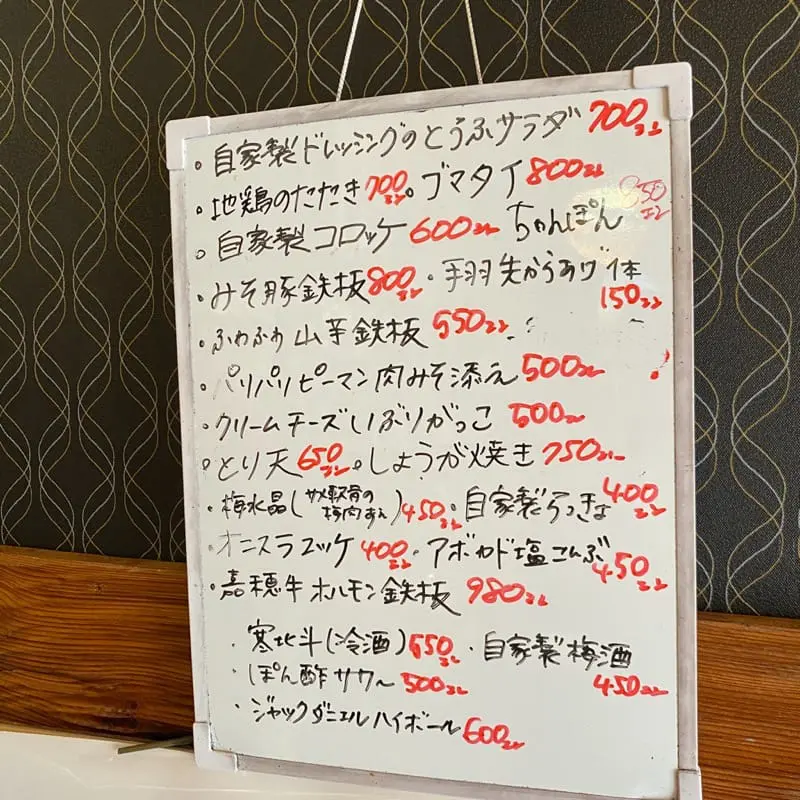 ・自家製ドレッシングのとうふサラダ 700コン
・地鶏のたたき 700コン ・ゴマタイ 800コン
・自家製コロッケ 600コン ちゃんぽん 850コン
・みそ豚鉄板 800コン ・手羽先からあげ1本 150コン
・ふわふわ山芋鉄板 550コン
・パリパリピーマン肉みそ添え 500コン
・クリームチーズいぶりがっこ 500コン
・とり天 650コン ・しょうが焼き 750コン
・梅水晶(サメ軟骨の梅肉あえ) 450コン ・自家製らっきょ 400コン
・オニスラユッケ 400コン ・アボカド塩こんぶ 450コン
・嘉穂牛ホルモン鉄板 980コン
・寒北斗(冷酒) 650コン ・自家製梅酒 450コン
・ぽん酢サワー 500コン
・ジャックダニエルハイボール 600コン